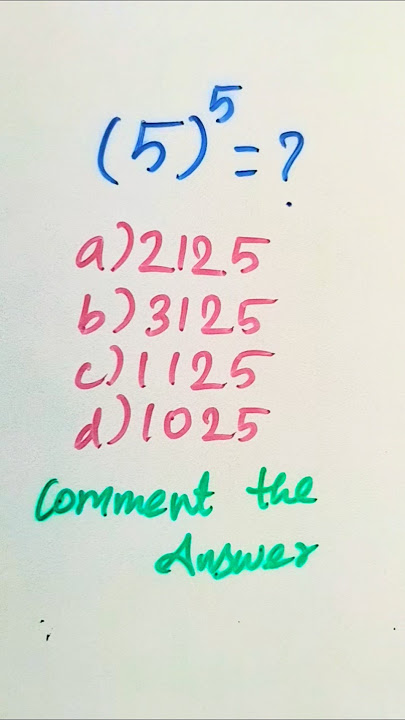 (5)⁵ = ?
a) 2125
b) 3125
c) 1125
d) 1025
Comment the
Answer